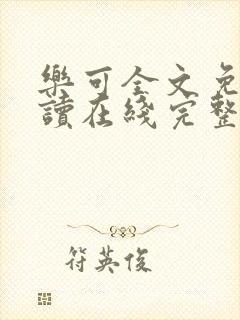 樂可全文免
讀在綫完整
符英俊